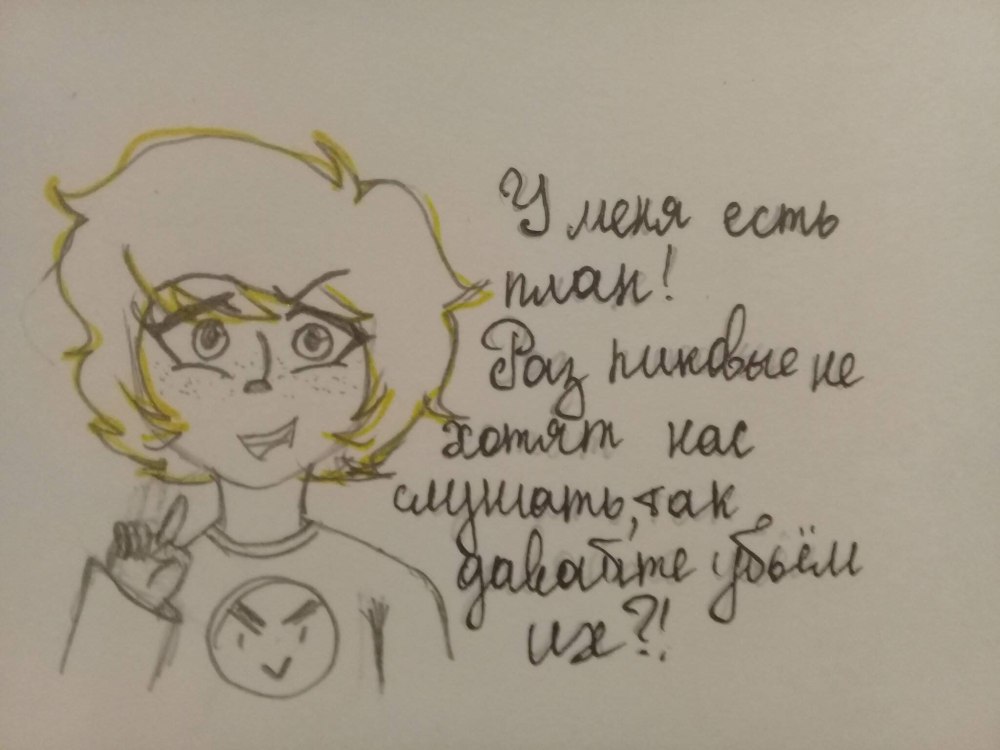 У меня есть
план!
Раз пиковые не
хотят нас
слушать, так
давайте убьём
их?!